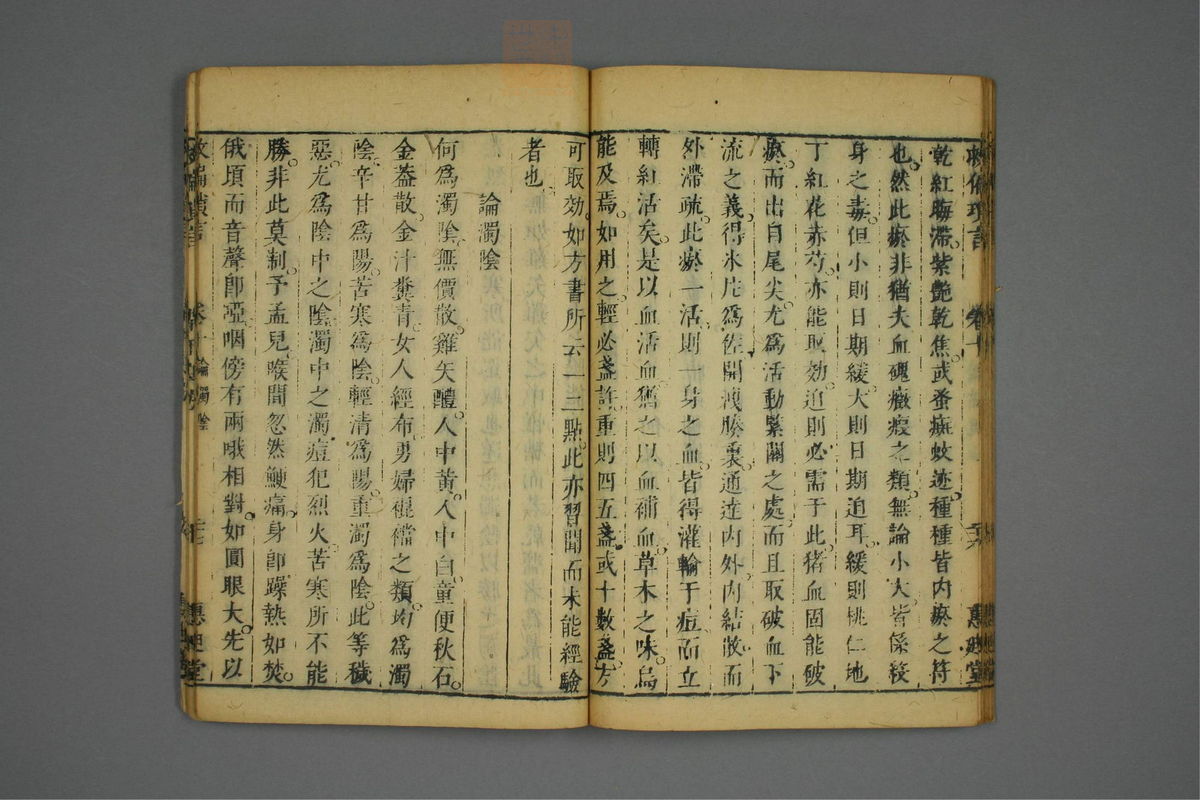 乾紅晦滯。紫艷乾焦。武蚤癍蚊迹種種皆内瘀之符
也。然此瘀非猶夫血磈癥瘕之類。無論小大。皆係殺
身之毒。但小則日期緩。大則日期迫耳。緩則桃仁地
丁紅花赤芍。亦能取効。迫則必需于此。猪血固能破
瘀。而出自尾尖。尤爲活動緊關之處。而且取破血下
流之義。得氷片爲佐。開渡腠裏。通達内外。内結散而
外滯疏。此瘀一活。則一身之血。皆得灌輸于痘而立
轉紅活矣。是以血活血。猶之以血補血。草木之味。烏
能及焉。如用之輕必盞許。重則四五盞或十數盞。方
可取効。如方書所云一二三點。此亦習聞而未能經驗
者也。
論濁陰
何爲濁陰。無價散。雞矢醴。人中黄。人中白。童便秋石。
金盖散。金汁糞青。女人經布。男婦裩襠之類。均爲濁
陰。辛甘爲陽。苦寒爲陰。輕清爲陽。重濁爲陰。此等穢
惡。尤爲陰中之陰。濁中之濁。痘犯烈火。苦寒所不能
勝。非此莫制。予孟兒喉間忽然鯁痛。身卽躁熱如焚。
俄頃而音聲卽啞。咽傍有兩哦相對。如圓眼大。先以